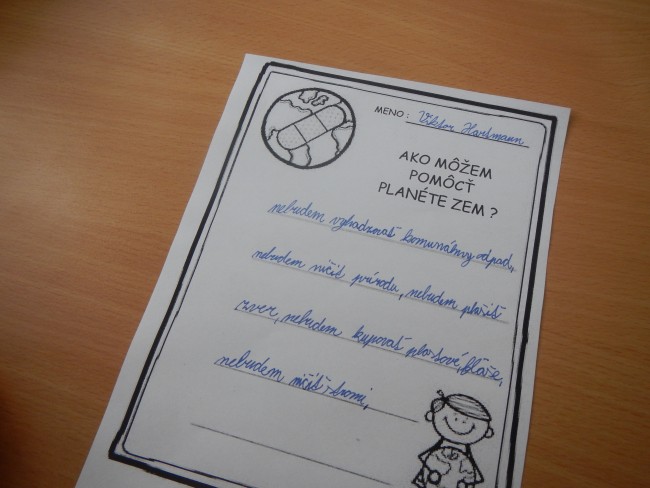 MENO: Viktor Hartmann
AKO MÔŽEM
POMÔCŤ
PLANÉTE ZEM?
nebudem vyhadzovať komunálny odpad,
nebudem ničiť prírodu, nebudem plašiť
zver, nebudem kupovať plastové fľaše,
nebudem ničiť stromi,